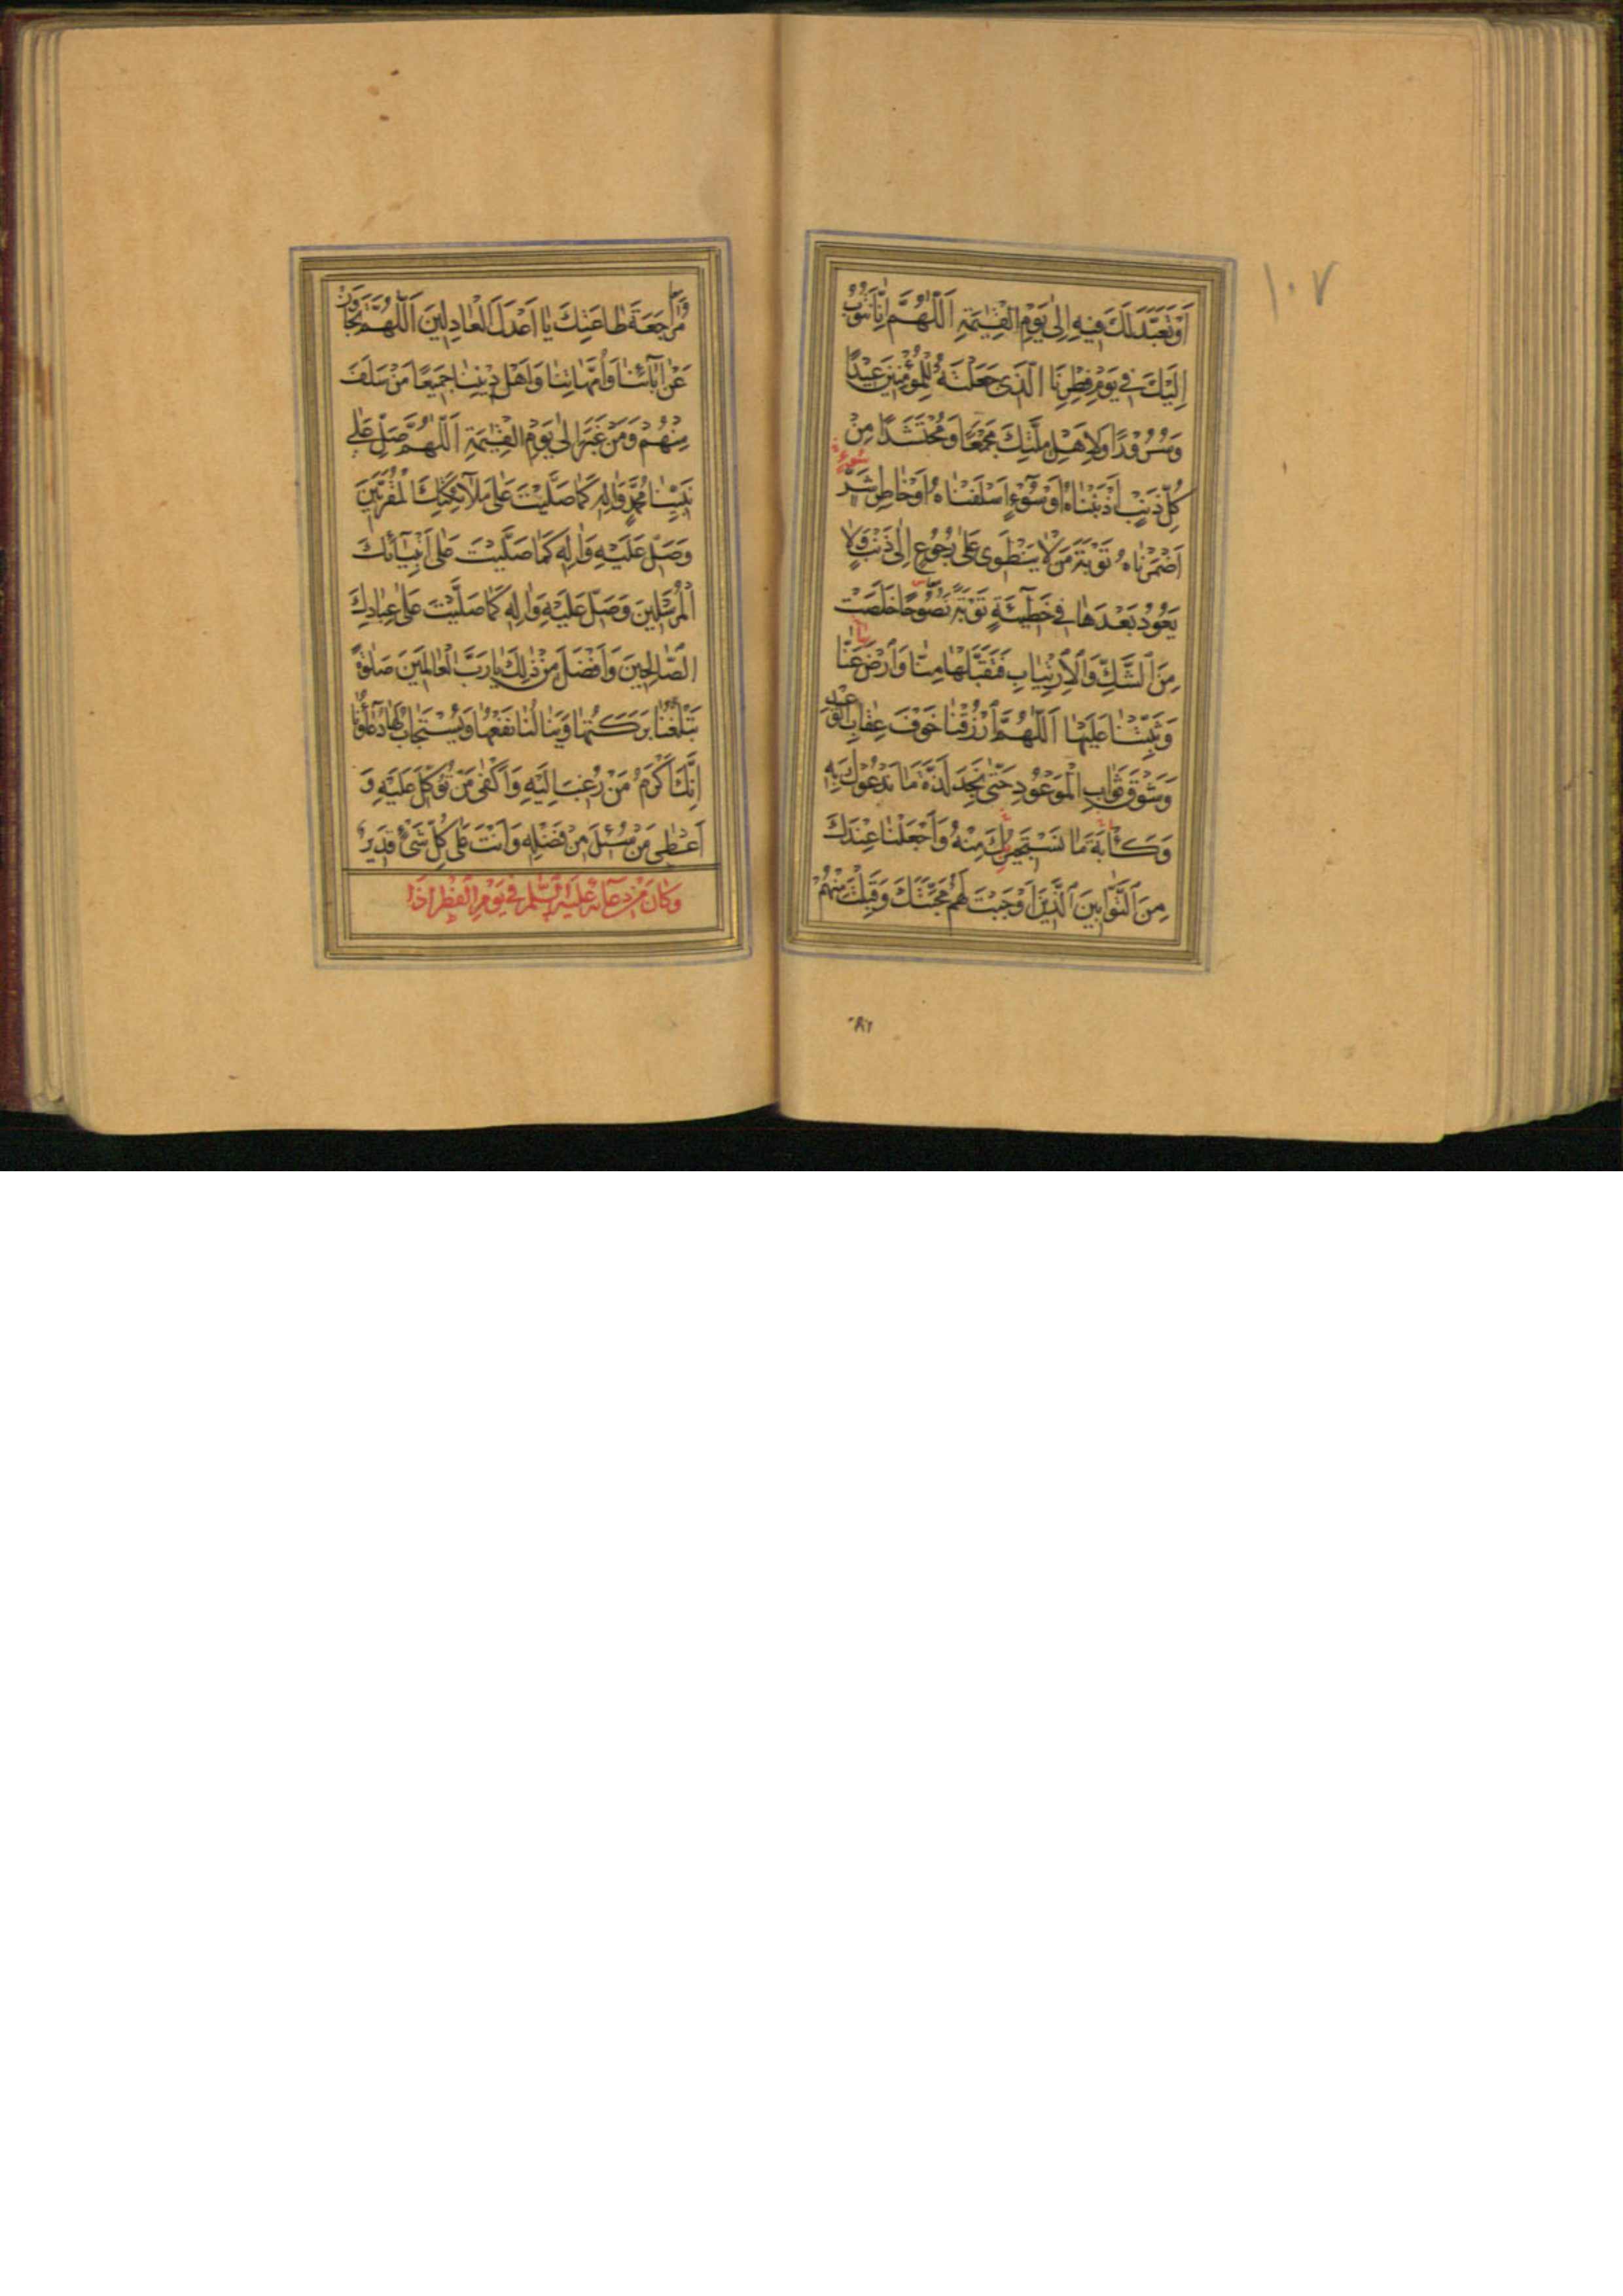 ١٠٧
اَوْ تَعَبَّدَ لَكَ فِيهِ اِلٰى يَوْمِ الْقِيٰمَةِ اَللّٰهُمَّ اِنَّا نَتُوبُ
اِلَيْكَ فِى يَوْمِ فِطْرِنَا الَّذِى جَعَلْتَهُ لِلْمُؤْمِنِينَ عِيْدًا
وَسُرُورًا وَلِاَهْلِ مِلَّتِكَ مَجْمَعًا وَمُحْتَشَدًا مِنْ
كُلِّ ذَنْبٍ اَذْنَبْنَاهُ اَوْ سُوْءٍ اَسْلَفْنَاهُ اَوْ خَاطِرِ شَرٍّ
اَضْمَرْنَاهُ تَوْبَةَ مَنْ لَا يَنْطَوِى عَلٰى رُجُوعٍ اِلٰى ذَنْبٍ وَلَا
يَعُودُ بَعْدَهَا فِى خَطِيْئَةٍ تَوْبَةً نَصُوحًا خَلَصَتْ
مِنَ الشَّكِّ وَالْاِرْتِيَابِ فَتَقَبَّلْهَا مِنَّا وَارْضَ عَنَّا
وَثَبِّتْنَا عَلَيْهَا اَللّٰهُمَّ ارْزُقْنَا خَوْفَ عِقَابِ الْوَعِيْدِ
وَشَوْقَ ثَوَابِ الْمَوْعُودِ حَتّٰى نَجِدَ لَذَّةَ مَا نَدْعُوكَ بِهِ
وَكَاٰبَةَ مَا نَسْتَجِيرُبِكَ مِنْهُ وَاجْعَلْنَا عِنْدَكَ
مِنَ التَّوَّابِينَ الَّذِينَ اَوْجَبْتَ لَهُمْ مَحَبَّتَكَ وَقَبِلْتَ مِنْهُمْ
مُرَاجَعَةَ طَاعَتِكَ يَا اَعْدَلَ الْعَادِلِينَ اَللّٰهُمَّ تَجَاوَزْ
عَنْ اٰبَآئِنَا وَاُمَّهَاتِنَا وَاَهْلِ دِيْنِنَا جَمِيْعًا مَنْ سَلَفَ
مِنْهُمْ وَمَنْ غَبَرَ اِلٰى يَوْمِ الْقِيٰمَةِ اَللّٰهُمَّ صَلِّ عَلٰى
نَبِيِّنَا مُحَمَّدٍ وَاٰلِهِ كَمَا صَلَّيْتَ عَلٰى مَلَآئِكَتِكَ الْمُقَرَّبِينَ
وَصَلِّ عَلَيْهِ وَاٰلِهِ كَمَا صَلَّيْتَ عَلٰى اَنْبِيَآئِكَ
الْمُرْسَلِينَ وَصَلِّ عَلَيْهِ وَاٰلِهِ كَمَا صَلَّيْتَ عَلٰى عِبَادِكَ
الصَّالِحِينَ وَاَفْضَلَ مِنْ ذٰلِكَ يَا رَبَّ الْعَالَمِينَ صَلٰوةً
تَبْلُغُنَا بَرَكَتُهَا وَيَنَالُنَا نَفْعُهَا وَيُسْتَجَابُ لَهَا دُعَآؤُنَا
اِنَّكَ اَكْرَمُ مَنْ رُغِبَ اِلَيْهِ وَاَكْفٰى مَنْ تُوُكِّلَ عَلَيْهِ وَ
اَعْطٰى مَنْ سُئِلَ مِنْ فَضْلِهِ وَاَنْتَ عَلٰى كُلِّ شَىْءٍ قَدِيرٌ
وَكَانَ مِنْ دُعَآئِهِ عَلَيْهِ السَّلٰمُ فِى يَوْمِ الْفِطْرِ اِذَا